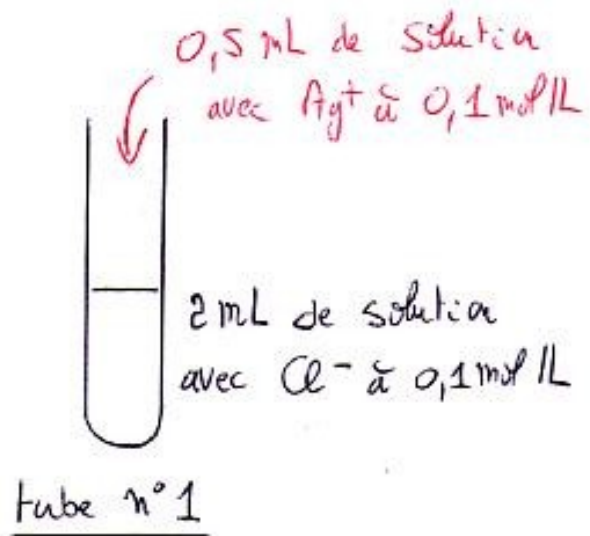 0,5 mL de solution
avec Ag+ à 0,1 mol/L
2 mL de solution
avec Cl- à 0,1 mol/L
tube n°1